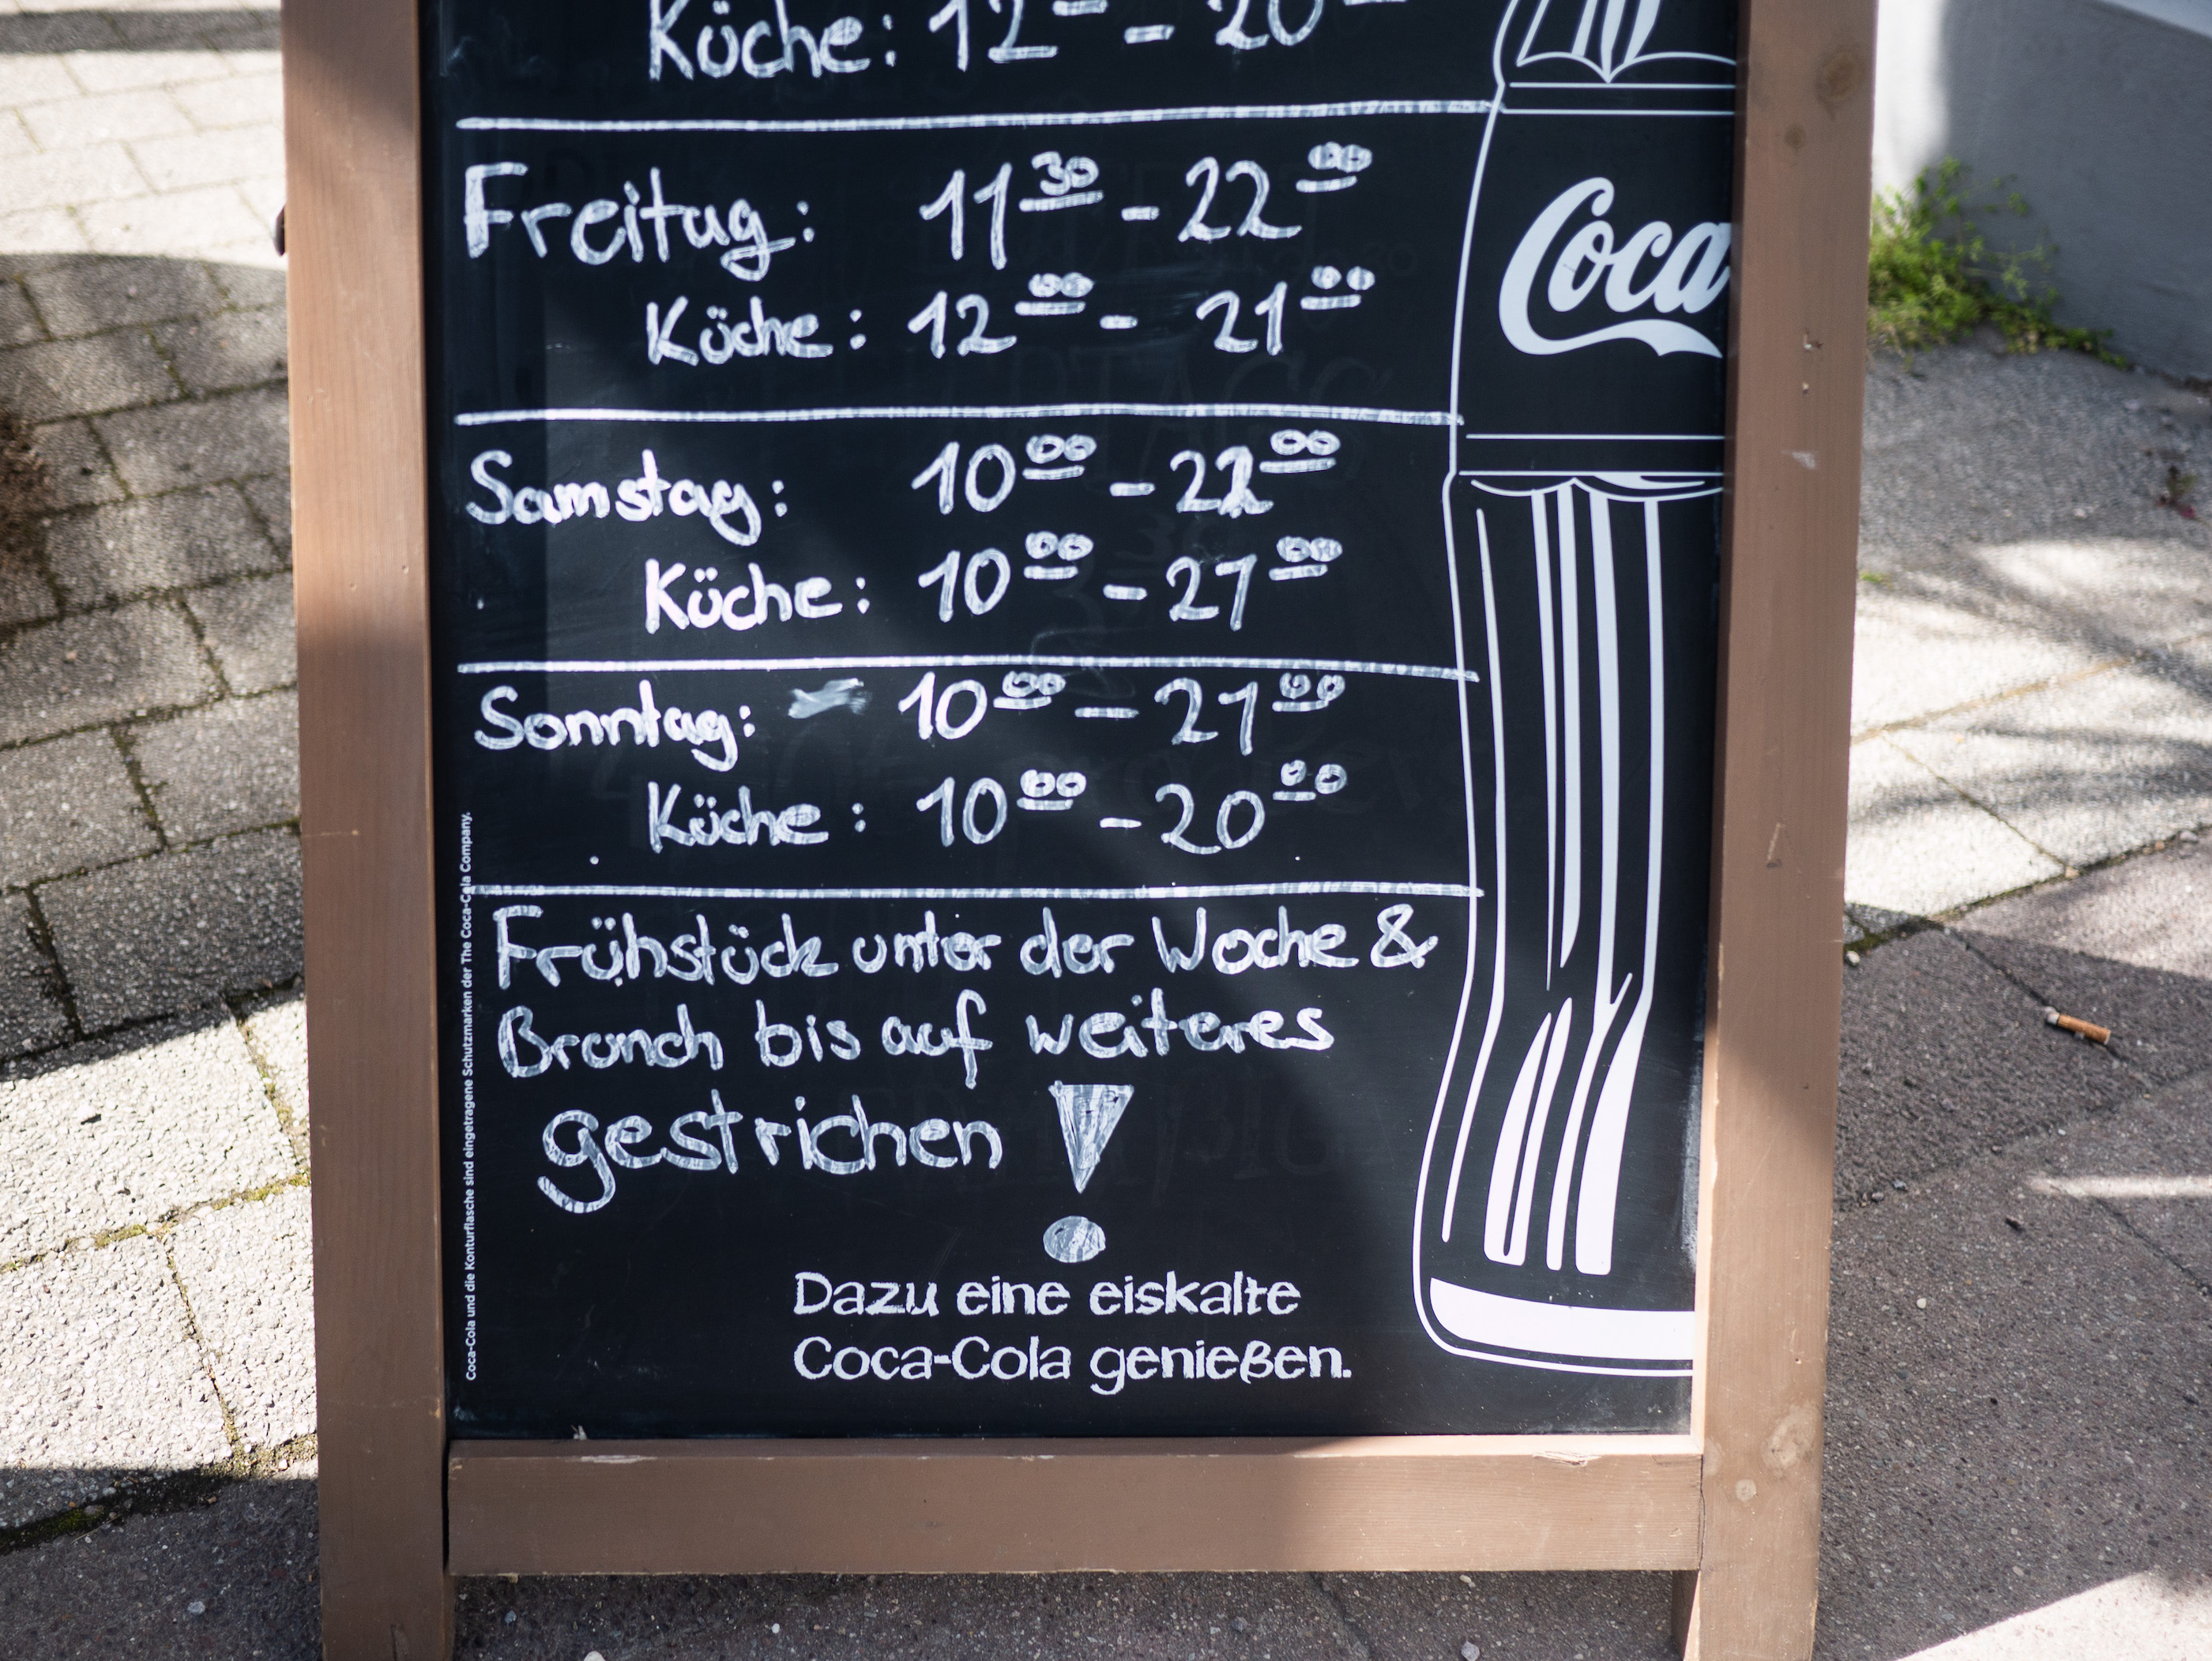 Küche: 12⁰⁰ - 20⁰⁰
Freitag: 11³⁰ - 22⁰⁰
Küche: 12⁰⁰ - 21⁰⁰
Samstag: 10⁰⁰ - 22⁰⁰
Küche: 10⁰⁰ - 21⁰⁰
Sonntag: 10⁰⁰ - 21⁰⁰
Küche: 10⁰⁰ - 20⁰⁰
Frühstück unter der Woche &
Brunch bis auf weiteres
gestrichen !
Dazu eine eiskalte
Coca-Cola genießen.
Coca
Coca-Cola und die Konturflasche sind eingetragene Schutzmarken der The Coca-Cola Company.